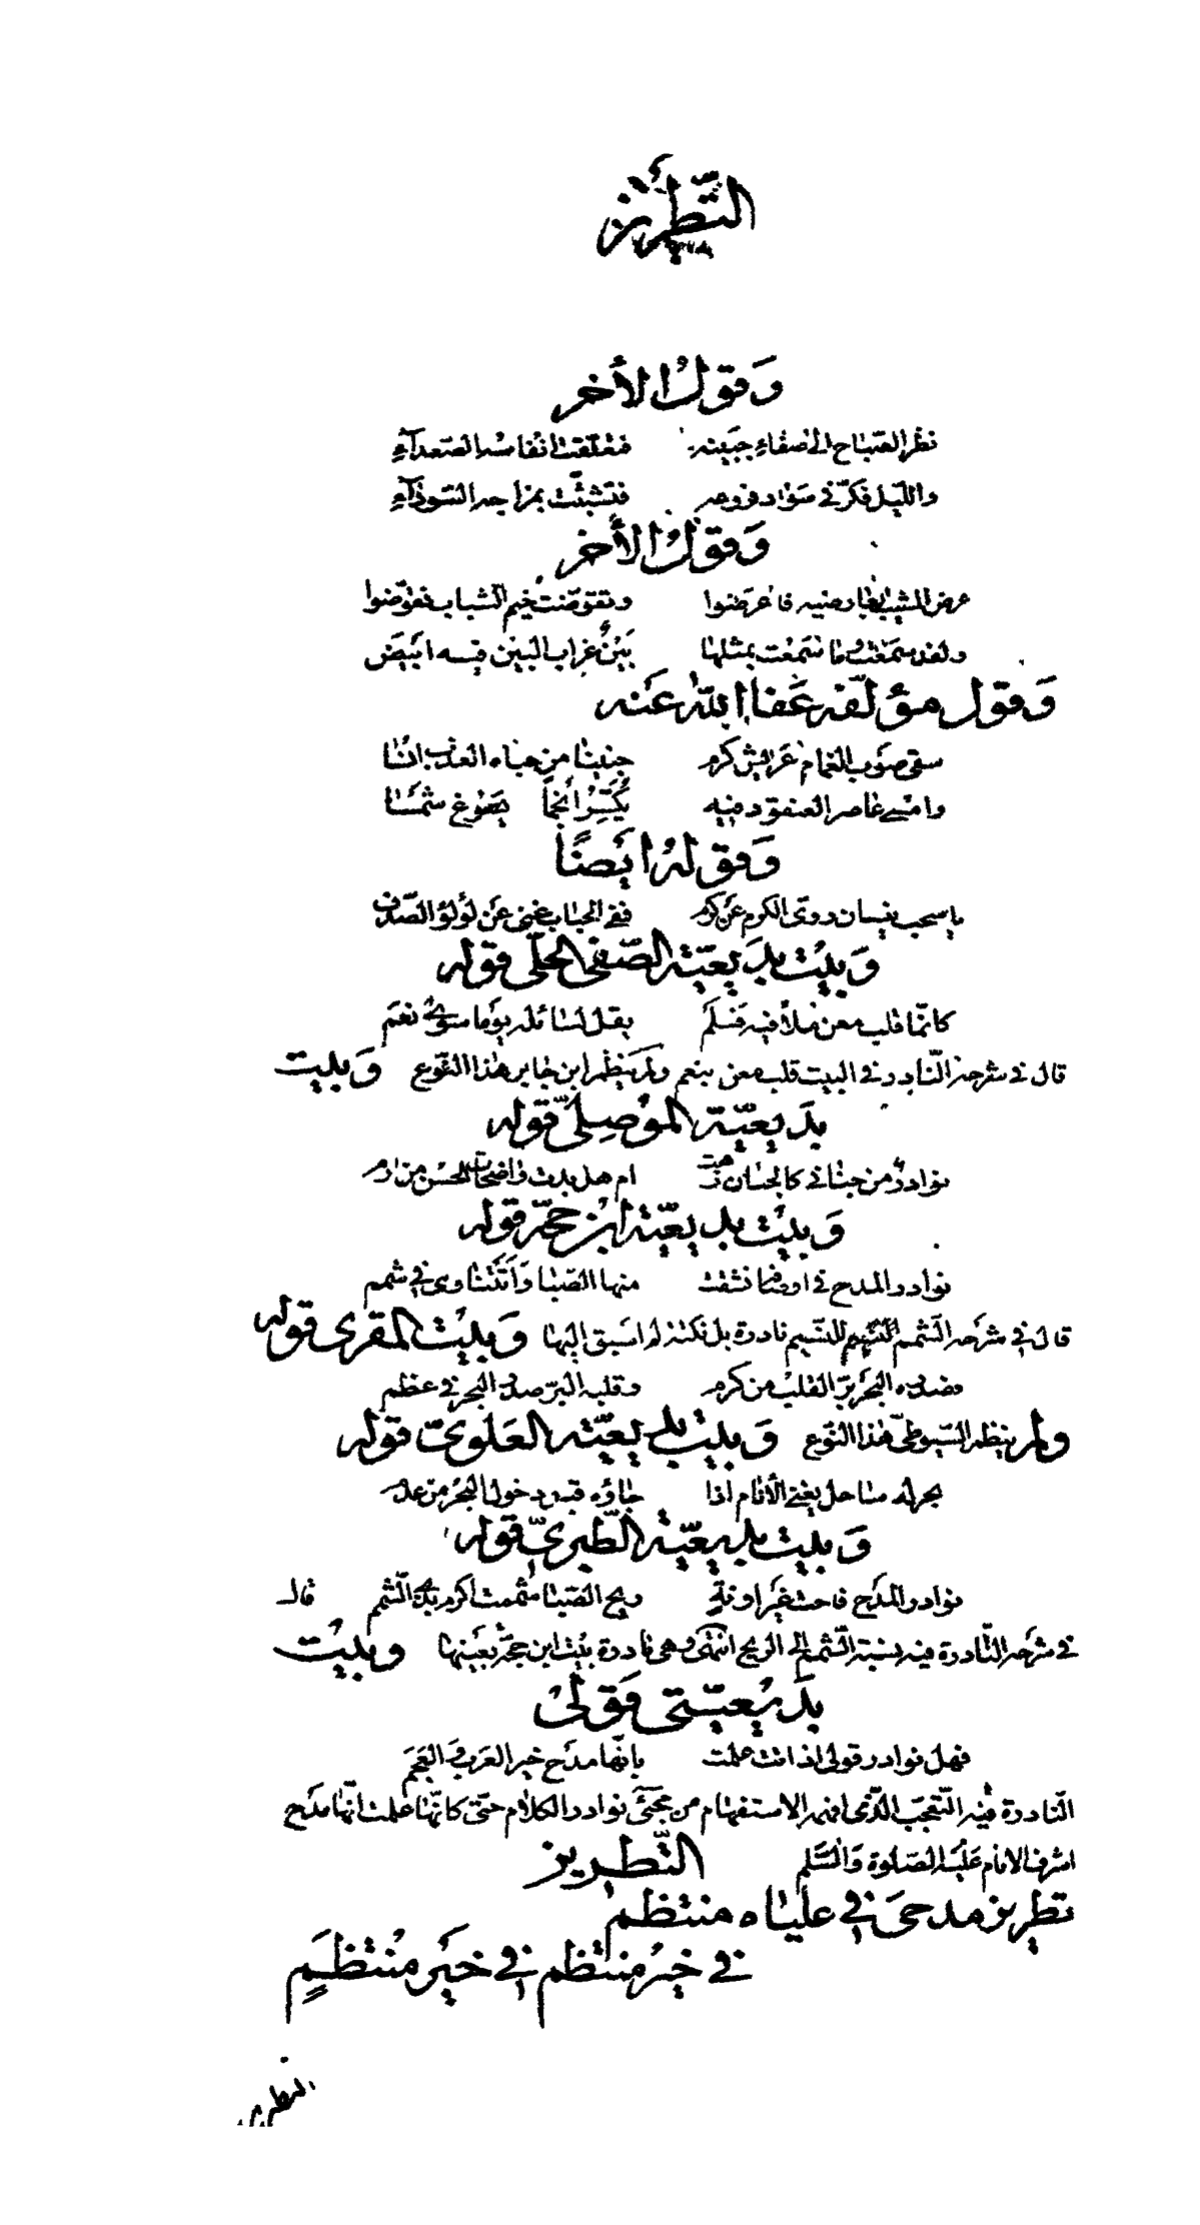 التَّطْرِيز
وَقولُ الآخر
نظر الصّباح الى صفاء جبينه فتعلّقت انفاسه الصّعدآء
واللّيل فكّر في سواد فروعه فتشبّثت بمزاجه السّودآء
وَقولُ الأخر
عرض المشيب بعارضيه فاعرضوا وتقوّضت خيم الشباب فقوّضوا
ولقد سمعت وما سمعت بمثلها بَيْنٌ غراب البين فيه ابيَض
وَقول مؤلّفه عَفا الله عَنه
سقى صَوب الغمام عَريش كرم جنينا من جناه العذب انسا
وامسى عاصر العنقود فيه يُكَسِّرُ انجماً يصوغ شمسا
وَقولهُ ايَضًا
يا سحب نيسان روّى الكرم عن كرم ففى الحباب غنى عَن لؤلؤ الصّدف
وَبيْت بدَيعيّة الصّفى الحلّى قوله
كانّما قلب معن ملأ فيه فلم يقل لسائله يومًا سوى نعَم
قال في شرحه النّادر في البيت قلب معن بنعم ولم ينظم ابن جابر هذا النّوع وَبيت
بدَيعيّة الموْصِلىّ قوله
نوادرٌ من جنانى كالجنان زهت ام هل بدت واضحات الحسن من ارم
وَبيْت بديعيّة ابن حجّة قوله
نوادر المدح في اوصافه نشقت منها الصّبا وَاَتَتْنا وهى في شمم
قال في شرحه الشمم للنّسيم نادرة بل نكتة لم اسبق اليها وَبيْت المقرى قوله
فضله البحر برّ القلب من كرم وقلبه البرّ صدر البحر في عظم
ولم ينظم السّيوطىّ هذا النّوع وَبيْت بديعيّة العَلوىّ قوله
بحر له ساحل يغنى الأنام اذا جاؤه قبل دخول البحر من عدم
وَبيت بديعيّة الطّبرىّ قوله
نوادر المدَح فاحت غَير اونةٍ ريح الصّبا شممت اكرم بذى الشّمم قال
في شرحه النّادرة فيه نسبة الشّمم الى الريح انتهى وهى نادرة بيْت ابن حجّة بعَينها وبيْت
بدَيْعيّتى قَولىْ
فهل نوادر قولى اذ اتت علمت بانّها مدَح خير العَرب وَالعَجَم
النّادرة فيْه التّعجّب الّذى افهمه الاستفهام من مجَئ نوادر الكلام حتّى كانّها علمت انّها مدَح
اشرف الانام عَليْه الصّلوة وَالسَّلم التَّطريز
تطريز مدحىَ في علياه منتظم
في خيْر منتَظم في خيَر مُنْتظَمٍ
التطريز